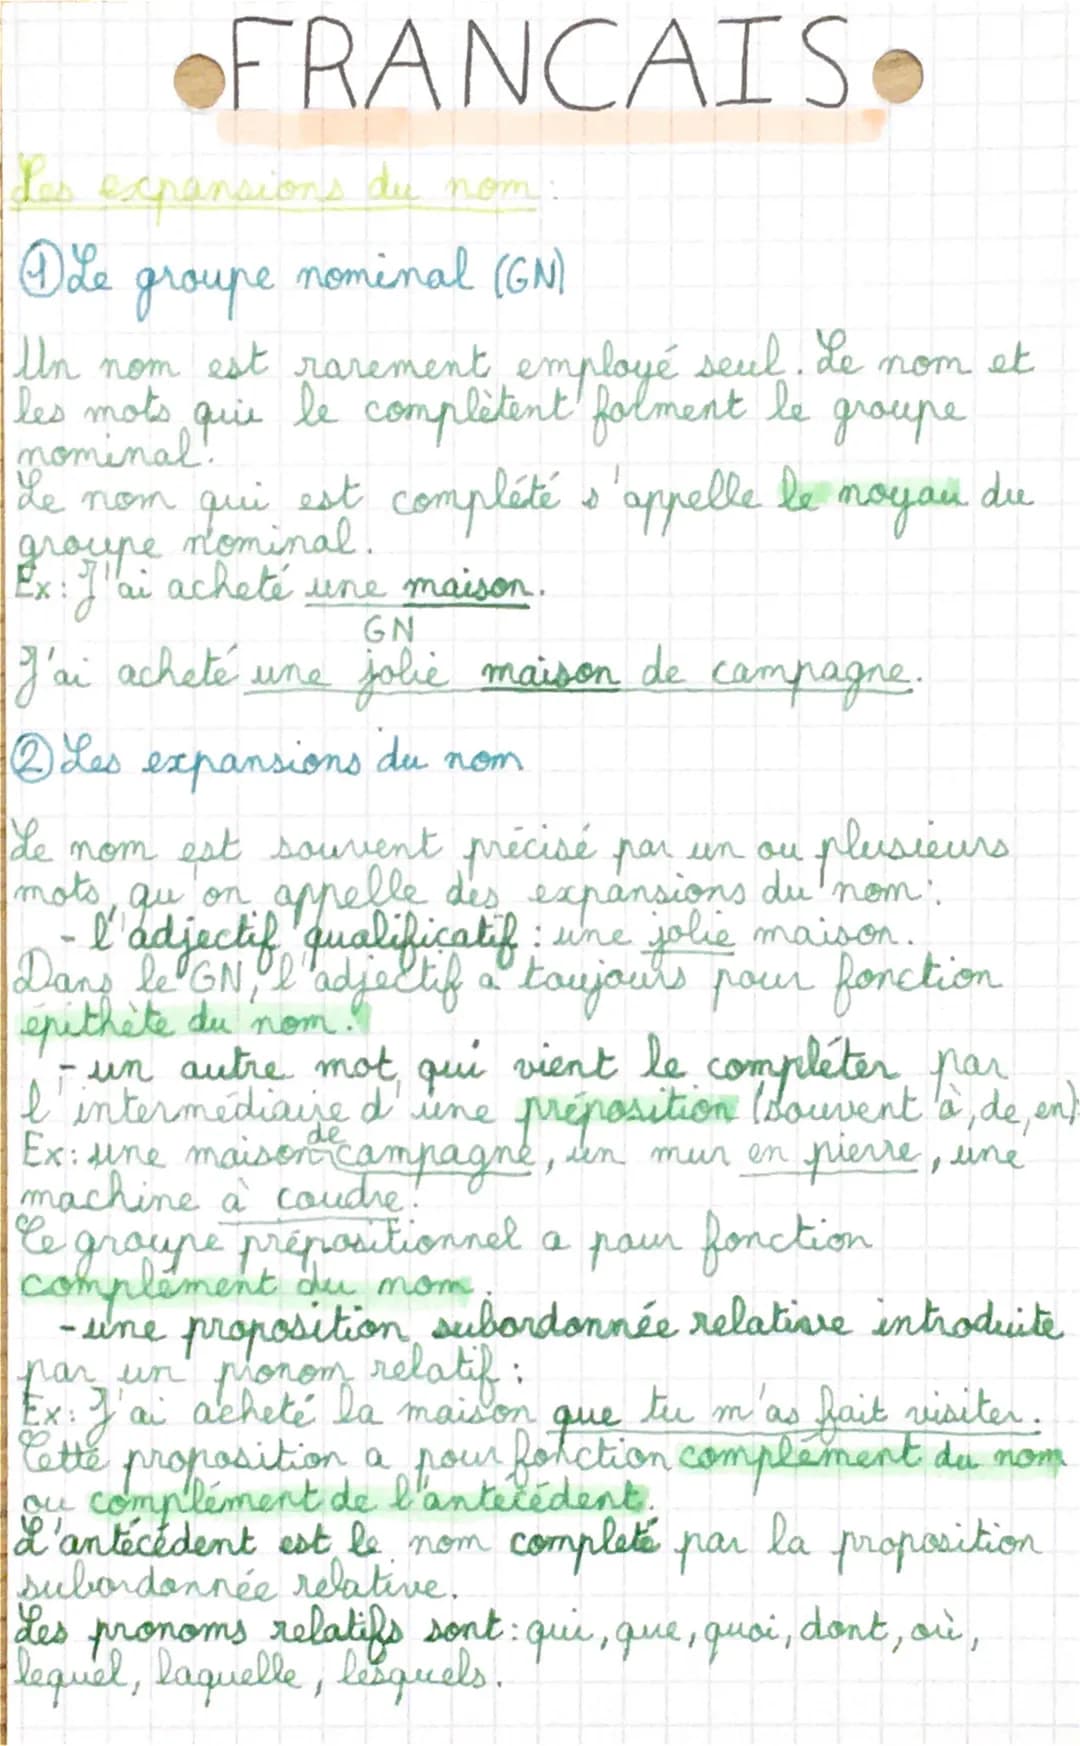 FRANCAIS
Les expansions du nom :
① Le groupe nominal (GN)
Un nom est rarement employé seul. Le nom et
les mots qui le complètent forment le groupe
nominal.
Le nom qui est complété s'appelle le noyau du
groupe nominal.
Ex : J'ai acheté une maison.
GN
J'ai acheté une jolie maison de campagne.
② Les expansions du nom
Le nom est souvent précisé par un ou plusieurs
mots, qu'on appelle des expansions du nom :
- l'adjectif qualificatif : une jolie maison.
Dans le GN, l'adjectif a toujours pour fonction
épithète du nom.
- un autre mot, qui vient le compléter par
l'intermédiaire d'une préposition (souvent à, de, en)
Ex : une maison de campagne, un mur en pierre, une
machine à coudre.
Ce groupe prépositionnel a pour fonction
complément du nom.
- une proposition subordonnée relative introduite
par un pronom relatif :
Ex : J'ai acheté la maison que tu m'as fait visiter.
Cette proposition a pour fonction complément du nom
ou complément de l'antécédent.
L'antécédent est le nom complété par la proposition
subordonnée relative.
Les pronoms relatifs sont : qui, que, quoi, dont, où,
lequel, laquelle, lesquels.